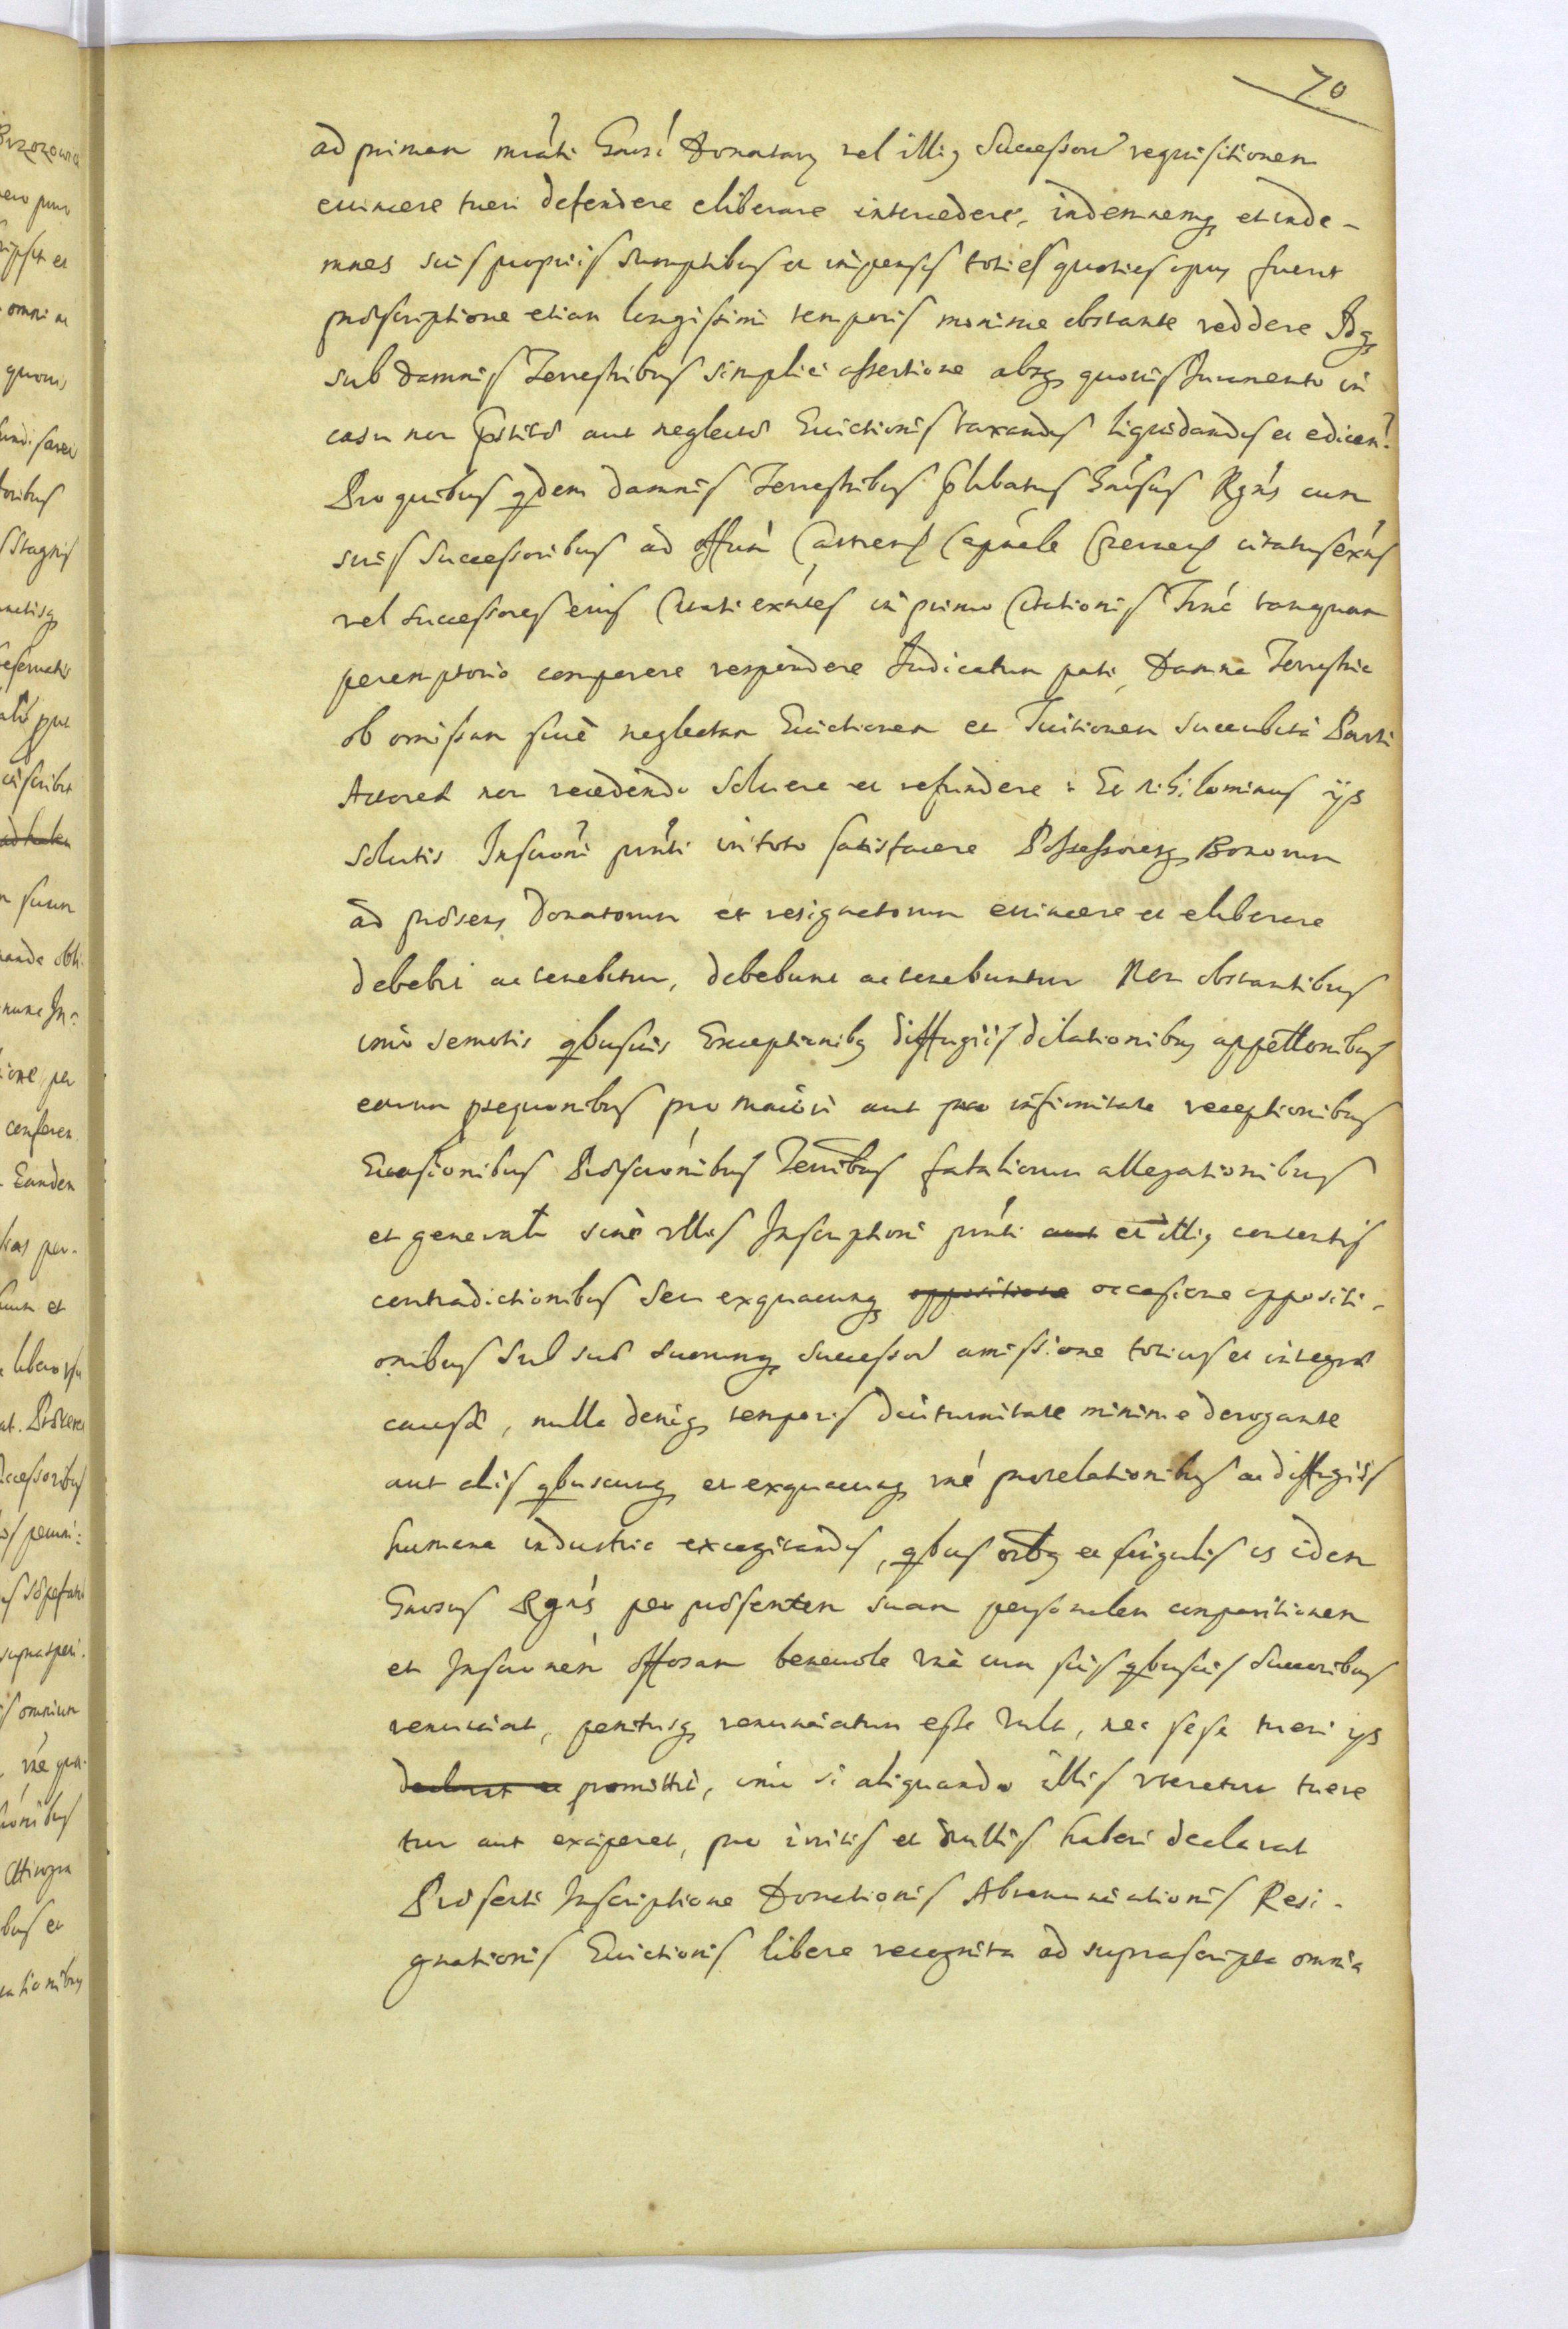 70
ad primam mrati Gnosi Donatarij vel illiq Successorũ requisitionem
euincere tueri defendere eliberare intercedere, indemnemq et inde-
mnes suis proprijs sumptibus et impensis toties quoties opus fuerit
præscriptione etiam longissimi temporis minime obstante reddere Idq
sub damnis Terrestribus simplici assertione absq quouis Juramento in
casu non pstitæ aut neglectæ Euictionis taxandis liquidandis et edicen:
Pro quibus qdem damnis Terrestribus plibatus Gnosus Rgns cum
suis Successoribus ad offm Castren Capnale Cremen citatus exns
vel Successores eius Citati exntes in primo Citationis Trno tanquam
peremptorio comparere respondere Judicatum pati, Damna Terrestria
ob omissam siue neglectam Euictionem et Tuitionem succubita Parti
Actoreæ non recedendo soluere et refundere: Et nihilominus ijs
solutis Inscrõni pnti in toto satisfacere Possessoresq Bonorum
ad præsens Donatorum et resignatorum euincere et eliberare
debebit ac tenebitur, debebunt ac tenebuntur Non obstantibus
imo semotis qbusuis Exceptionibq diffugijs dilationibus appellonibus
earum psequonibus pro maiori aut pro infirmitate receptionibus
Euasionibus Præscrõnibus Terribus fatalium allegationibus
et generalr siue vllis Inscriptioni pnti aut et illiq contentis
contradictionibus seu exquacunq oppositione occasione oppositi-
onibus Sub suæ suorumq Successorũ amissione totius et integræ
causæ, nulla deniq temporis diuturnitate minime derogante
aut alijs qbuscunq et exquacunq rne prorelationibus ac diffugijs
humana industria excogitandis, qbus oibq et singulis is idem
Gnosus Rgns per præsentem suam personalem comparitionem
et Inscronem offosam beneuole vna cum suis qbusuis Succoribus
renunciat, penitusq renunciatum esse vult, nec sese tueri ijs
declarat et promittit, imo si aliquando illis vteretur tuere
tur aut exciperet, pro irritis et nullis haberi declarat
Præsenti Inscriptione Donationis Abrenunciationis Resi-
gnationis Euictionis libere recognita ad suprascripta omnia